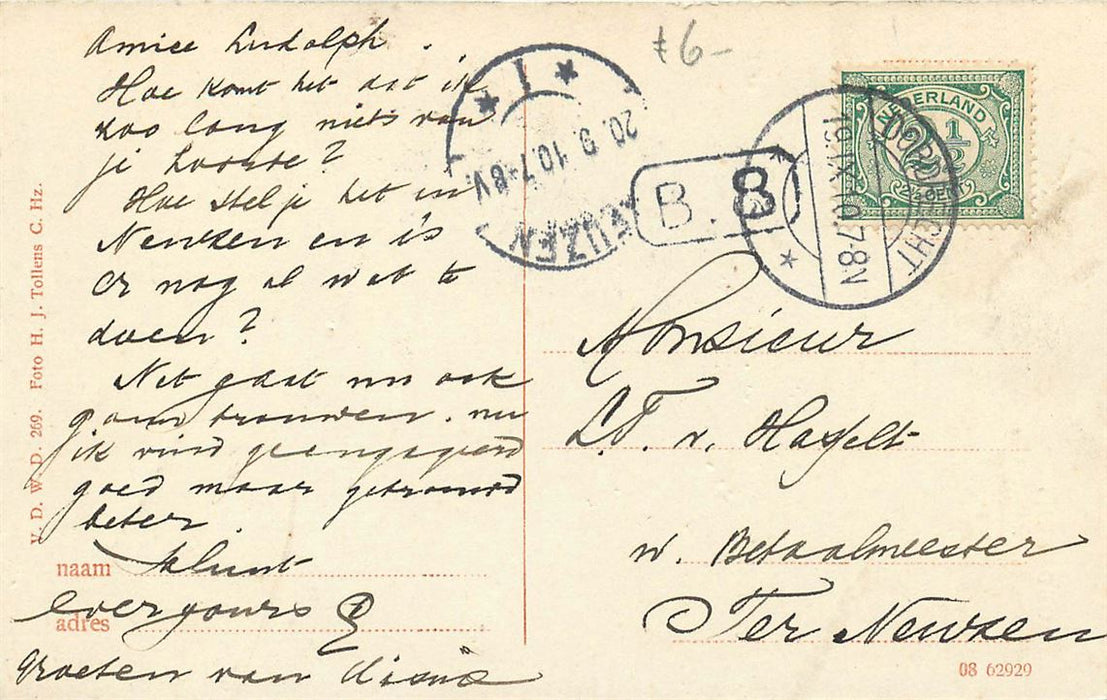 Amice Ludolph.
Hoe komt het dat ik
zoo lang niets van
je hoorde?
Hoe stel je het in
Neuzen en is
er nog al wat te
doen?
Net gaat nu ook
gaan trouwen. nu
ik vind geengageerd
goed maar getrouwd
beter.
klinkt
ever yours
Groeten van
naam
adres
V. D. W. D. 269. Foto H. J. Tollens C. Hz.
f 6-
1
20. 9. 10 7-8V.
NEUZEN
B. 8
DORDRECHT
19. IX. 10. 7-8N
NEDERLAND
2½
2½ CENT
Monsieur
L.F. v. Hasselt
w. Betaalmeester
Ter Neuzen
08 62929